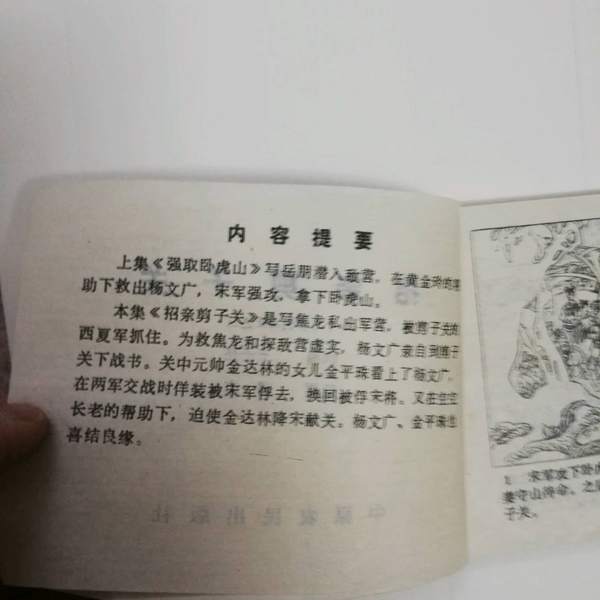 内容提要
上集《强取卧虎山》写岳朋潜入敌营，在黄金玲的
助下救出杨文广，宋军强攻，拿下卧虎山。
本集《招亲剪子关》是写焦龙私出军营，被剪子关的
西夏军抓住。为救焦龙和探敌营虚实，杨文广亲自到剪子
关下战书。关中元帅金达林的女儿金平珠看上了杨文广，
在两军交战时佯装被宋军俘去，换回被俘宋将。又在空空
长老的帮助下，迫使金达林降宋献关。杨文广、金平珠也
喜结良缘。
1 宋军攻下卧虎
姜守山待命。之
子关。